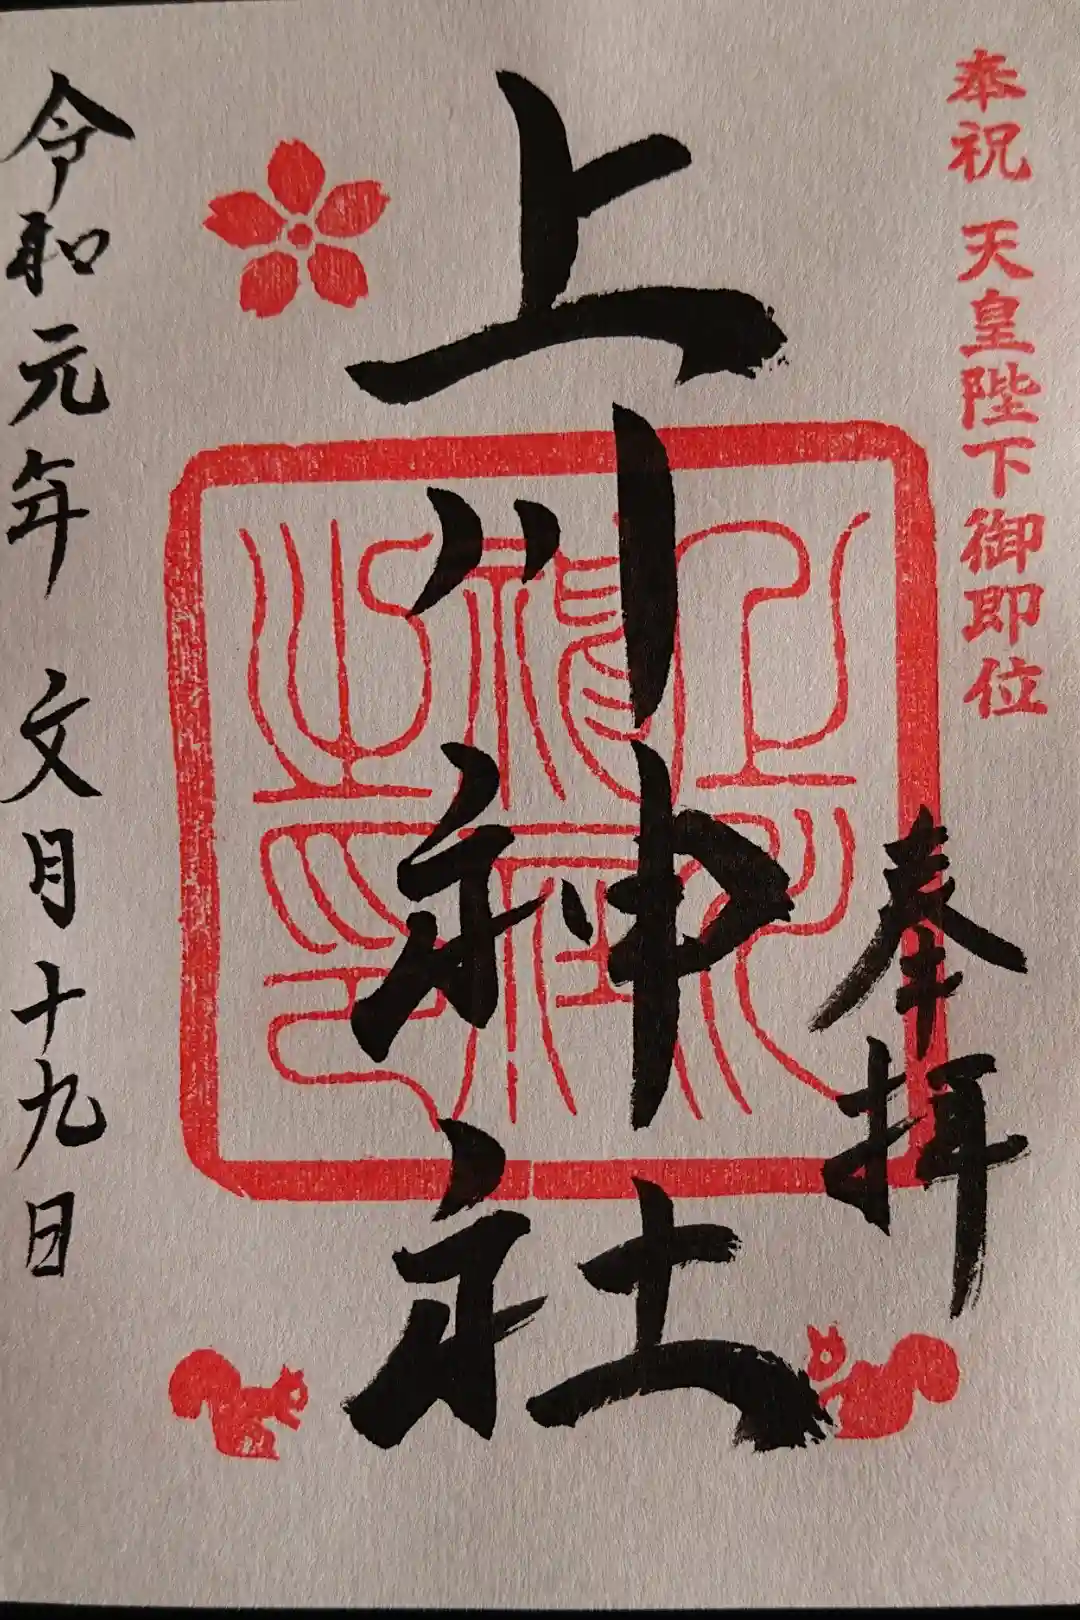 奉祝 天皇陛下御即位
奉拝
上川神社
上川
神社
之印
令和元年 文月十九日